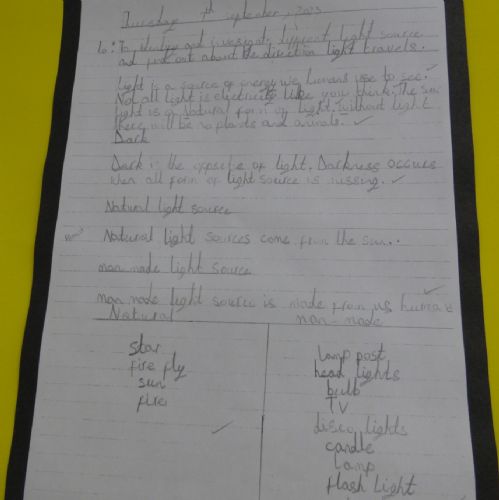 Thursday 7th September, 2023
Lo: To identify and investigate different light source
and find out about the direction light travels.
Light is a source of energy we humans use to see.
Not all light is electricity like you think. The sun
light is a natural form of light. Without light
there will be no plants and animals.
Dark
Dark is the opposite of light. Darkness occurs
when all form of light source is missing.
Natural light source
Natural light sources come from the sun.
man made light source
man made light source is made from us human's
Natural man-made
star
fire fly
sun
fire
lamp post
head lights
bulb
TV
disco lights
candle
lamp
flash light